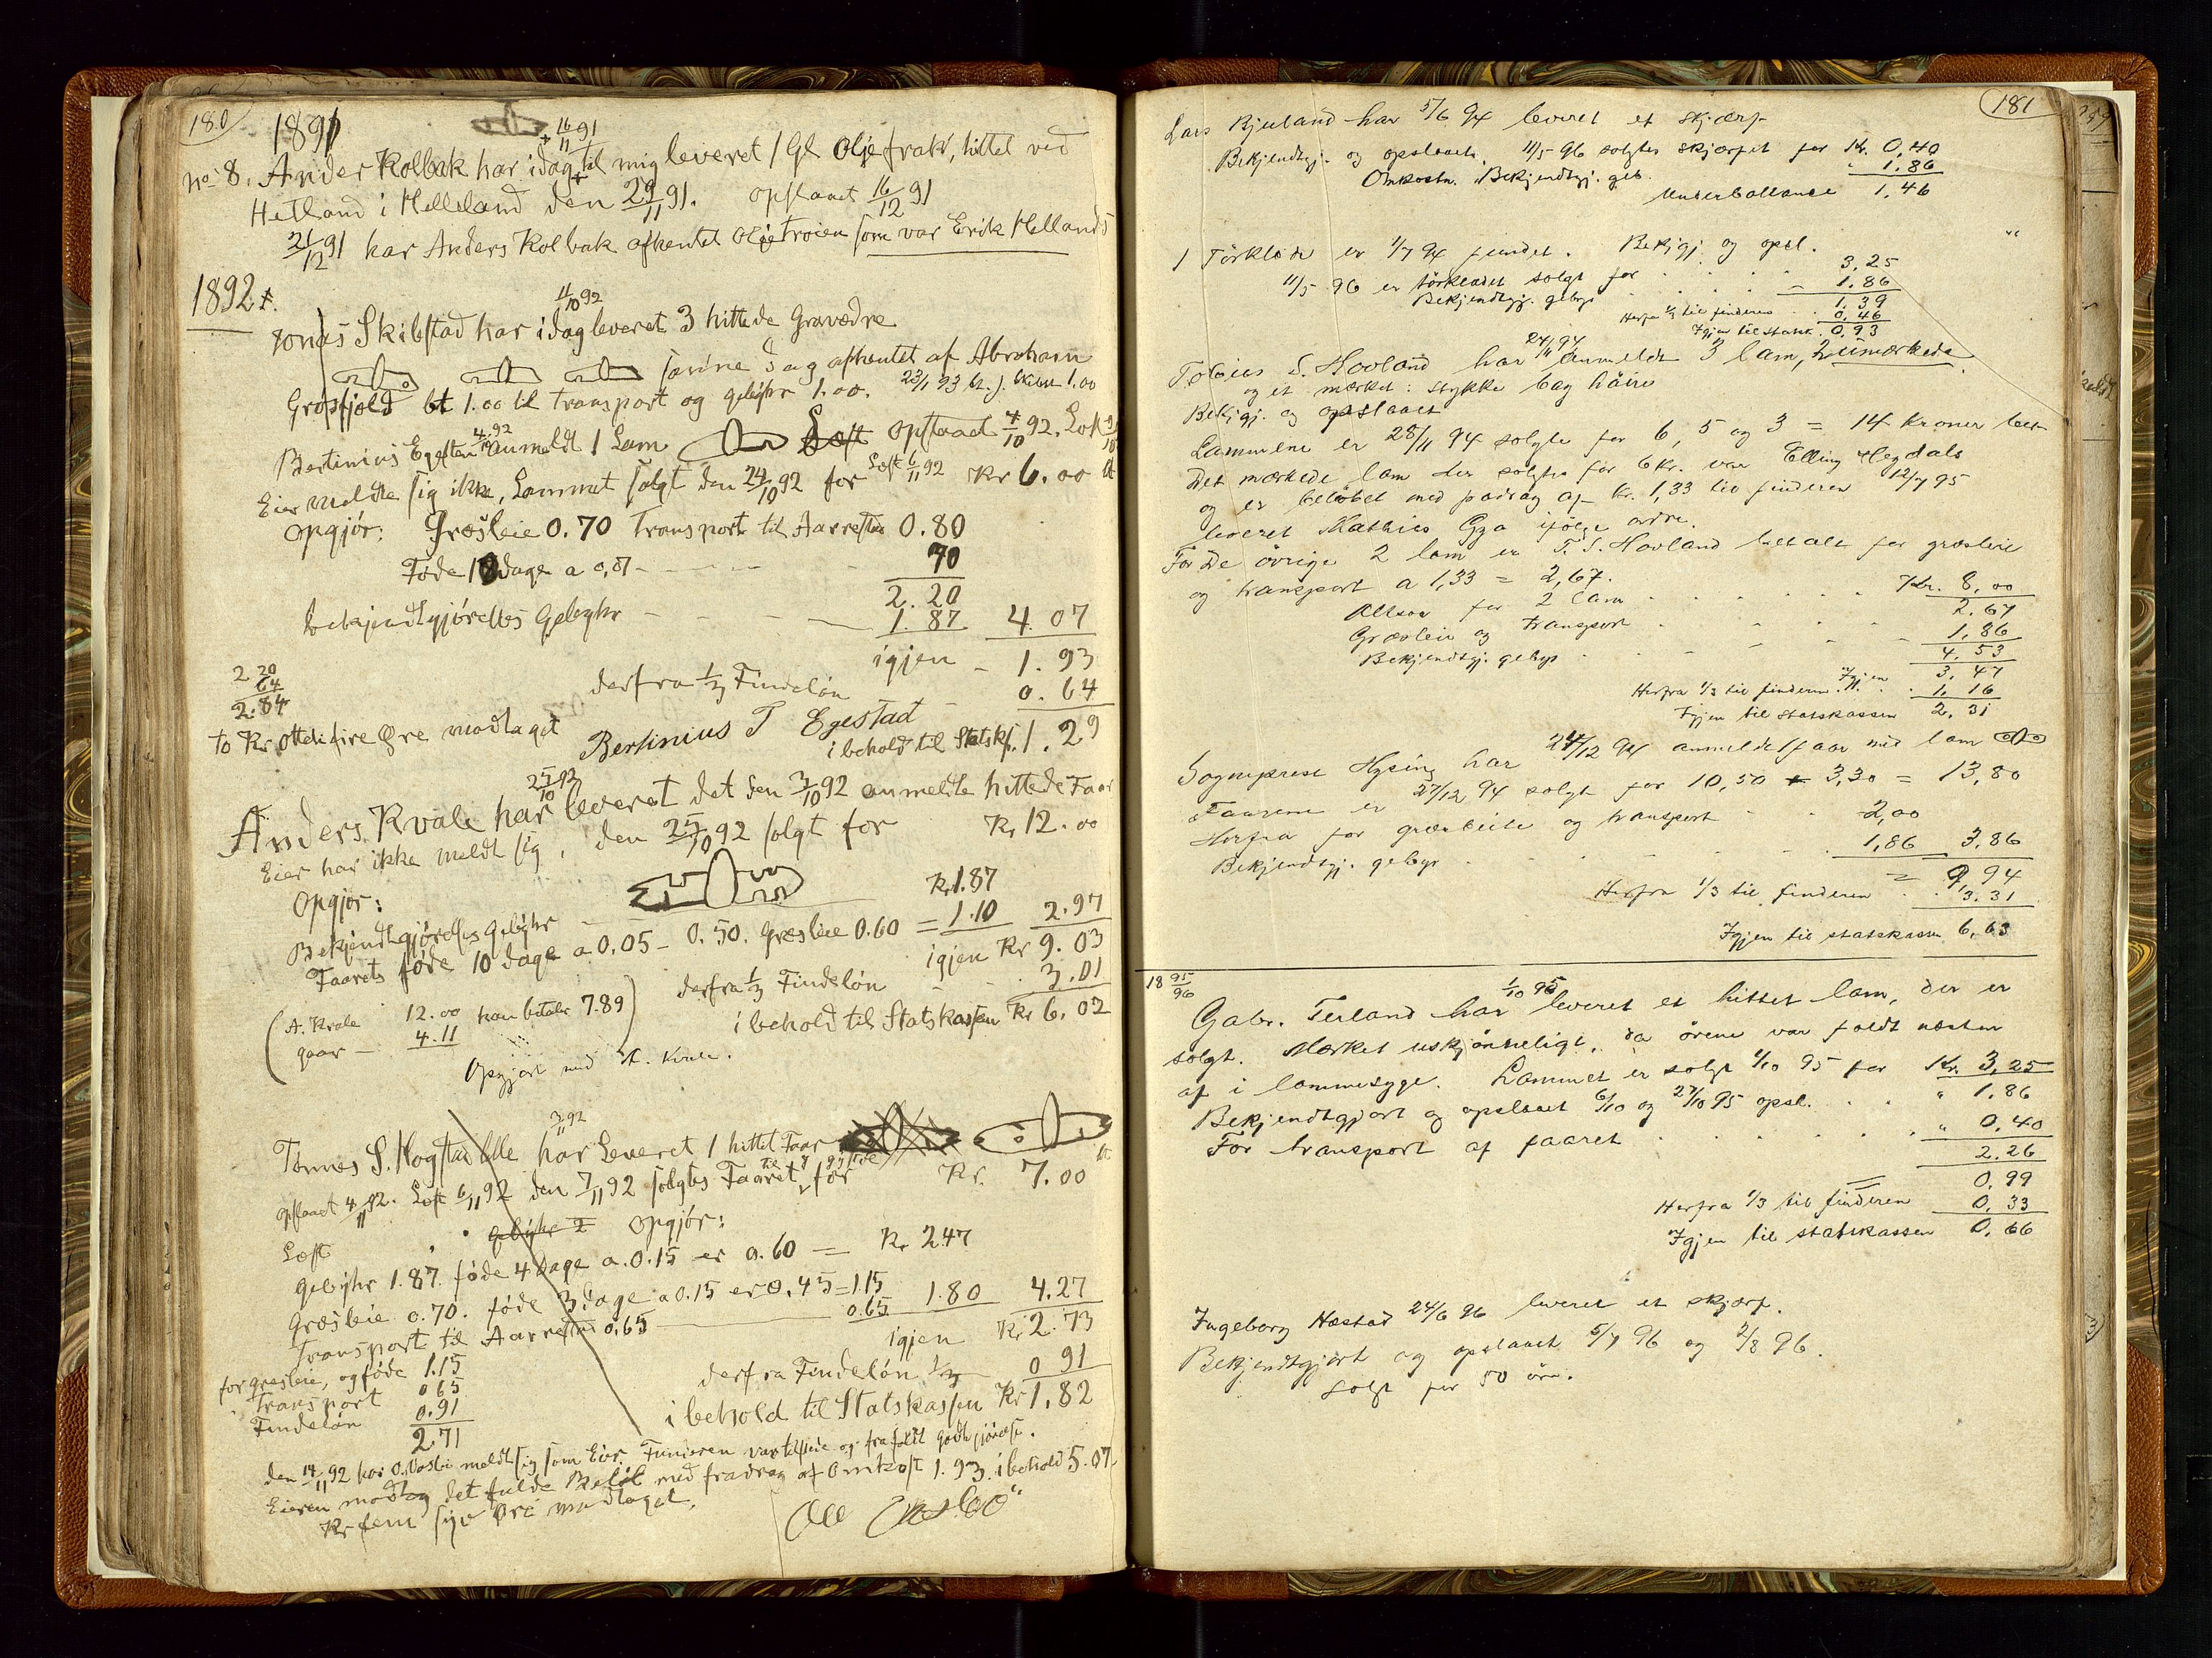 180
1891
16/11 91
No 8. Anders Kolbak har idag til mig leveret 1 Gl Oljefrakk, hittet ved
Hetland i Helleland den 29/11 91. opslaaet 16/12 91
21/12 91 har Anders Kolbak afhentet Oljetroien som var Erik Hellands
1892
11/10 92
Jonas Skibstad har idag leveret 3 hittede Gravædre
samme Dag afhentet af Abraham
Grøsfjeld bt 1.00 til transport og gebyhr 1.00. 23/1 93 1.00
Bertinius Egestad 4/10 92 anmeldt 1 Lam opslaaet 4/10 92.
Eier meldte sig ikke, Lammet solgt den 24/10 92 for Kr 6.00
opgjør: Græsleie 0.70 Transport til Aarrestad 0.80
Føde 10 dage a 0,07 - 70
2.20
bekjendtgjørelses Gebyhr - 1.87 4.07
igjen - 1.93
derfra 1/3 Findeløn 0.64
2.20
64
2.84
to Kr. ottekifire Øre modtaget Bertinius T Egestad
i behold til Statsk. 1.29
25/10 92
Anders Kvale har leveret det den 3/10 92 anmeldte hittede Faar
Eier har ikke meldt sig, den 25/10 92 solgt for Kr 12.00
Opgjør:
Bekjendtgjørelses Gebyhr - Kr 1.87
Faarets føde 10 dage a 0.05 - 0.50. Græsleie 0.60 = 1.10 2.97
igjen Kr 9.03
derfra 1/3 Findeløn - 3.01
i behold til Statskassen Kr 6.02
(A. Kvale 12.00 han betaler 7.89)
gaar - 4.11
Opgjort med A. Kvale.
3/11 92
Tønnes S. Hogstad lille har Leveret 1 hittet Faar
opslaaet 4/11 92. Læst 6/11 92 den 7/11 92 solgtes Faaret for Kr. 7.00
Læst gebyhr Opgjør:
Gebyhr 1.87. føde 4 dage a 0.15 er 0.60 = Kr 2.47
Græsleie 0.70. føde 3 dage a 0.15 er 0.45 = 1.15
Transport til Aarrestad 0.65 0.65 1.80 4.27
igjen Kr 2.73
derfra Findeløn 1/3 0 91
i behold til Statskassen Kr 1,82
for græsleie, og føde 1.15
" Transport 0.65
Findeløn 0.91
2.71
den 14/11 92 har O. Osebø meldt sig som Eier. Finderen var tilstede og frafaldt godtgjørelse.
Eieren modtog det fulde Beløb med fradrag af Omkost 1.93. i behold 5.07
Kr fem syv Øre modtaget.
181
Lars Bjuland har 5/6 94 leveret et skjærf
Bekjendtgj. og opslaaet. 11/5 96 solgtes skjærfet for Kr. 0,40
Omkostn. Bekjendtgj. geb. " 1,86
Underballance 1,46
1 Tørklæde er 1/7 94 fundet. Bekjgj. og opsl.
11/5 96 er tørklædet solgt for 3,25
Bekjendtgj. gebyr 1,86
1,39
Herfra 1/3 til finderen 0,46
Igjen til statsk. 0,93
24/11 94
Tobias S. Hovland har anmeldt 3 lam, 2 umærkede
og et mærket: stykke bag høire
Bekjgj. og opslaaet
Lammene er 28/11 94 solgte for 6, 5 og 3 = 14 kroner
Det mærkede lam der solgtes for 6 kr. var Elling Hegdals
og er beløbet med fradrag af kr. 1,33 til finderen 12/7 95
leveret Mathias Gya ifølge ordre.
For de øvrige 2 lam er T. S. Hovland betalt for græsleie
og transport a 1,33 = 2,67.
Altsaa for 2 lam Kr. 8,00
Græsleie og transport 2.67
Bekjendtgj. gebyr 1,86
4,53
Igjen 3,47
Herfra 1/3 til finderen 1,16
Igjen til statskassen 2,31
Sogneprest Hysing har 24/12 94 anmeldt faar med lam
Faarene er 27/12 94 solgt for 10,50 + 3,30 = 13,80
Herfra for græsbeite og transport 2,00
Bekjendtgj. gebyr 1,86 3,86
= 9 94
Herfra 1/3 til finderen 3.31
Igjen til statskassen 6,63
18 95/96
1/10 95
Gabr. Terland har leveret et hittet lam, der er
solgt. Mærket uskjønneligt, da ørene var faldt næsten
af i lammesyge. Lammet er solgt 1/10 95 for Kr. 3,25
Bekjendtgjort og opslaaet 6/10 og 27/10 95 opsl. " 1,86
For transport af faaret " 0,40
2.26
= 0,99
Herfra 1/3 til finderen 0,33
Igjen til statskassen 0,66
Ingeborg Næstad 24/6 96 leveret et skjærf.
Bekjendtgjort og opslaaet 5/7 96 og 2/8 96.
Solgt for 50 øre.